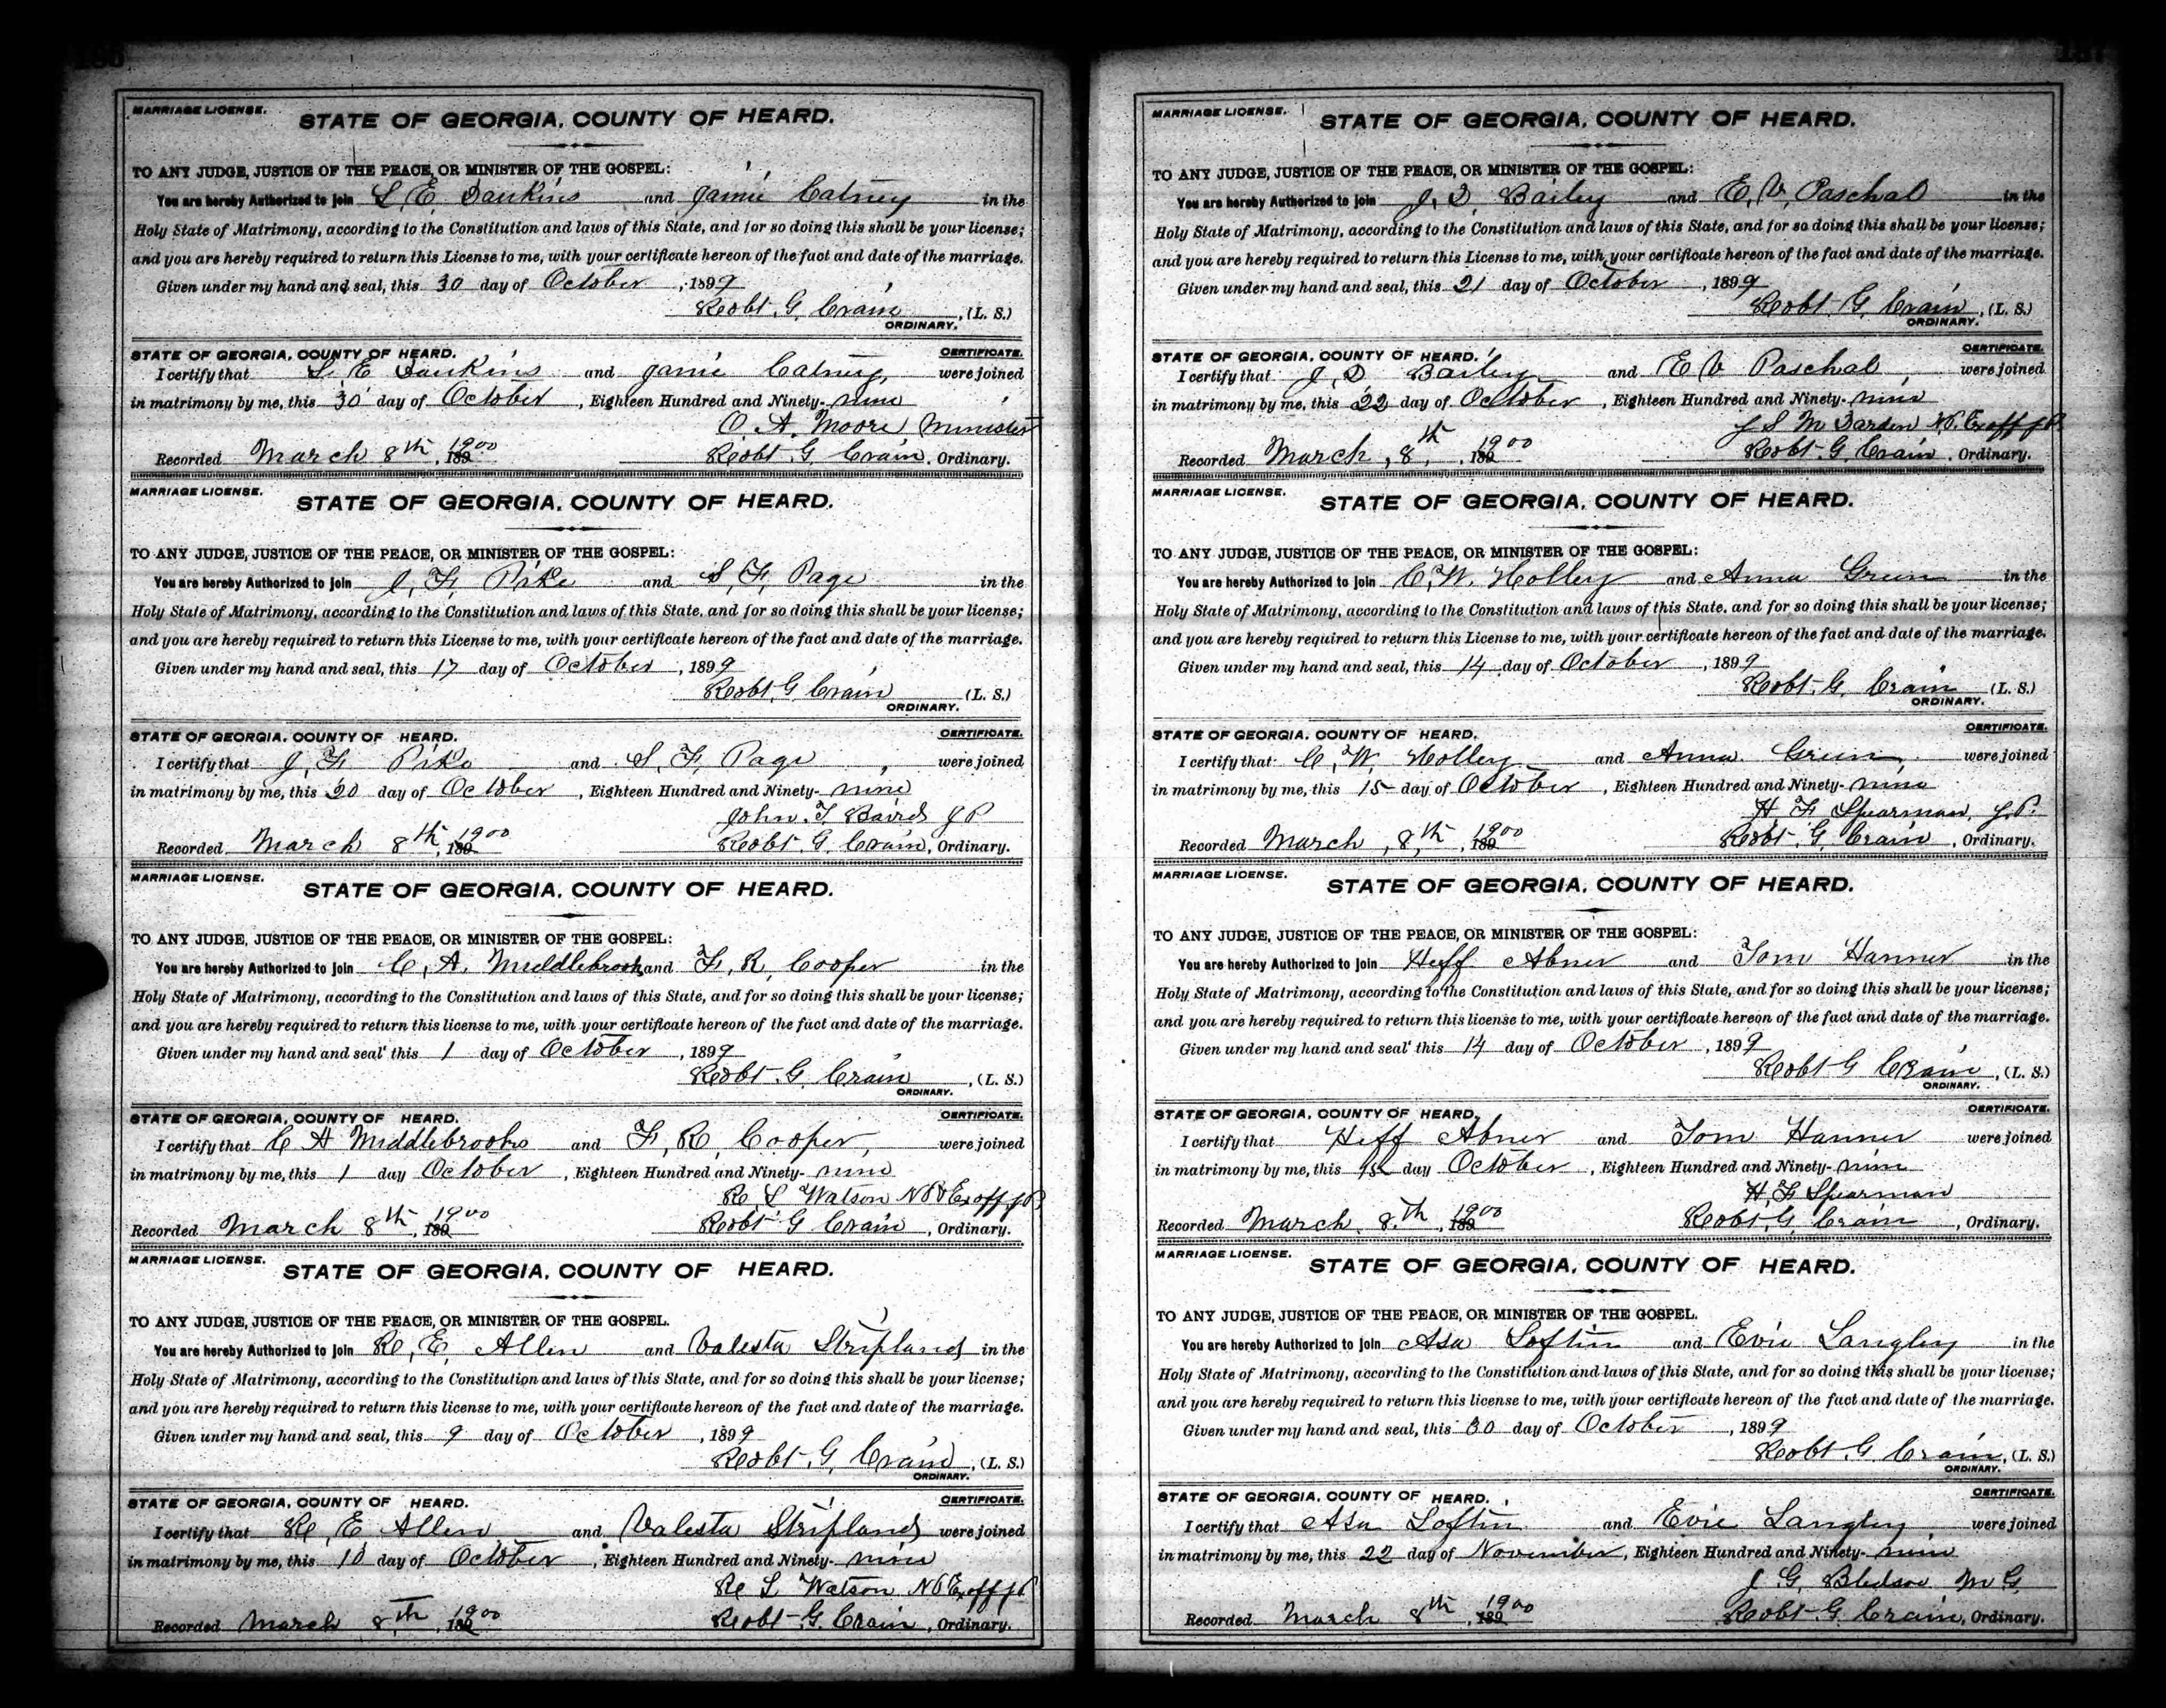 MARRIAGE LICENSE.
STATE OF GEORGIA, COUNTY OF HEARD.
TO ANY JUDGE, JUSTICE OF THE PEACE, OR MINISTER OF THE GOSPEL:
You are hereby Authorized to join S. E. and Jamie in the
Holy State of Matrimony, according to the Constitution and laws of this State, and for so doing this shall be your license;
and you are hereby required to return this License to me, with your certificate hereon of the fact and date of the marriage.
Given under my hand and seal, this 30 day of October, 1899
Robt. G. Crain, (L. S.)
ORDINARY.
STATE OF GEORGIA, COUNTY OF HEARD. CERTIFICATE.
I certify that S. E. and Jamie were joined
in matrimony by me, this 30 day of October, Eighteen Hundred and Ninety-nine
O. A. Moore Minister
Recorded March 8th, 1900 Robt. G. Crain, Ordinary.
MARRIAGE LICENSE.
STATE OF GEORGIA, COUNTY OF HEARD.
TO ANY JUDGE, JUSTICE OF THE PEACE, OR MINISTER OF THE GOSPEL:
You are hereby Authorized to join J. F. Pike and S. F. Page in the
Holy State of Matrimony, according to the Constitution and laws of this State, and for so doing this shall be your license;
and you are hereby required to return this License to me, with your certificate hereon of the fact and date of the marriage.
Given under my hand and seal, this 17 day of October, 1899
Robt. G Crain (L. S.)
ORDINARY.
STATE OF GEORGIA, COUNTY OF HEARD. CERTIFICATE.
I certify that J. F. Pike and S. F. Page, were joined
in matrimony by me, this 20 day of October, Eighteen Hundred and Ninety-nine
John. T. Baird J P
Recorded March 8th, 1900 Robt. G. Crain, Ordinary.
MARRIAGE LICENSE.
STATE OF GEORGIA, COUNTY OF HEARD.
TO ANY JUDGE, JUSTICE OF THE PEACE, OR MINISTER OF THE GOSPEL:
You are hereby Authorized to join C. A. Middlebrooks and F. R. Cooper in the
Holy State of Matrimony, according to the Constitution and laws of this State, and for so doing this shall be your license;
and you are hereby required to return this license to me, with your certificate hereon of the fact and date of the marriage.
Given under my hand and seal this 1 day of October, 1899
Robt. G. Crain, (L. S.)
ORDINARY.
STATE OF GEORGIA, COUNTY OF HEARD. CERTIFICATE.
I certify that C A Middlebrooks and F. R. Cooper, were joined
in matrimony by me, this 1 day October, Eighteen Hundred and Ninety-nine
R. L Watson N P & Ex off J. P.
Recorded March 8th, 1900 Robt. G Crain, Ordinary.
MARRIAGE LICENSE.
STATE OF GEORGIA, COUNTY OF HEARD.
TO ANY JUDGE, JUSTICE OF THE PEACE, OR MINISTER OF THE GOSPEL.
You are hereby Authorized to join R. E. Allen and Valesta Stripland in the
Holy State of Matrimony, according to the Constitution and laws of this State, and for so doing this shall be your license;
and you are hereby required to return this license to me, with your certificate hereon of the fact and date of the marriage.
Given under my hand and seal, this 9 day of October, 1899
Robt. G. Crain, (L. S.)
ORDINARY.
STATE OF GEORGIA, COUNTY OF HEARD. CERTIFICATE.
I certify that R. E Allen and Valesta Stripland were joined
in matrimony by me, this 10 day of October, Eighteen Hundred and Ninety-nine
R L Watson N P Ex off J P
Recorded March 8th, 1900 Robt. G. Crain, Ordinary.
MARRIAGE LICENSE.
STATE OF GEORGIA, COUNTY OF HEARD.
TO ANY JUDGE, JUSTICE OF THE PEACE, OR MINISTER OF THE GOSPEL:
You are hereby Authorized to join J. D. Bailey and E. V. Paschal in the
Holy State of Matrimony, according to the Constitution and laws of this State, and for so doing this shall be your license;
and you are hereby required to return this License to me, with your certificate hereon of the fact and date of the marriage.
Given under my hand and seal, this 21 day of October, 1899
Robt. G. Crain, (L. S.)
ORDINARY.
STATE OF GEORGIA, COUNTY OF HEARD. CERTIFICATE.
I certify that J. D Bailey and E V Paschal, were joined
in matrimony by me, this 22 day of October, Eighteen Hundred and Ninety-nine
J S M Darden N. P. Ex off J P.
Recorded March, 8th, 1900 Robt. G. Crain, Ordinary.
MARRIAGE LICENSE.
STATE OF GEORGIA, COUNTY OF HEARD.
TO ANY JUDGE, JUSTICE OF THE PEACE, OR MINISTER OF THE GOSPEL:
You are hereby Authorized to join C. W. Holley and Anna Green in the
Holy State of Matrimony, according to the Constitution and laws of this State, and for so doing this shall be your license;
and you are hereby required to return this License to me, with your certificate hereon of the fact and date of the marriage.
Given under my hand and seal, this 14 day of October, 1899
Robt. G. Crain (L. S.)
ORDINARY.
STATE OF GEORGIA, COUNTY OF HEARD. CERTIFICATE.
I certify that C. W. Holley and Anna Green, were joined
in matrimony by me, this 15 day of October, Eighteen Hundred and Ninety-nine
H. F Spearman, J. P.
Recorded March, 8th, 1900 Robt. G. Crain, Ordinary.
MARRIAGE LICENSE.
STATE OF GEORGIA, COUNTY OF HEARD.
TO ANY JUDGE, JUSTICE OF THE PEACE, OR MINISTER OF THE GOSPEL:
You are hereby Authorized to join Heff Abner and Tom Hanner in the
Holy State of Matrimony, according to the Constitution and laws of this State, and for so doing this shall be your license;
and you are hereby required to return this license to me, with your certificate hereon of the fact and date of the marriage.
Given under my hand and seal this 14 day of October, 1899
Robt G Crain, (L. S.)
ORDINARY.
STATE OF GEORGIA, COUNTY OF HEARD. CERTIFICATE.
I certify that Heff Abner and Tom Hanner were joined
in matrimony by me, this 15 day October, Eighteen Hundred and Ninety-nine
H. F Spearman
Recorded March 8th, 1900 Robt. G Crain, Ordinary.
MARRIAGE LICENSE.
STATE OF GEORGIA, COUNTY OF HEARD.
TO ANY JUDGE, JUSTICE OF THE PEACE, OR MINISTER OF THE GOSPEL.
You are hereby Authorized to join Asa Loftin and Evie Langley in the
Holy State of Matrimony, according to the Constitution and laws of this State, and for so doing this shall be your license;
and you are hereby required to return this license to me, with your certificate hereon of the fact and date of the marriage.
Given under my hand and seal, this 30 day of October, 1899
Robt. G. Crain, (L. S.)
ORDINARY.
STATE OF GEORGIA, COUNTY OF HEARD. CERTIFICATE.
I certify that Asa Loftin and Evie Langley, were joined
in matrimony by me, this 22 day of November, Eighteen Hundred and Ninety-nine
J. G. Bledsoe M G.
Recorded March 8th, 1900 Robt. G. Crain, Ordinary.